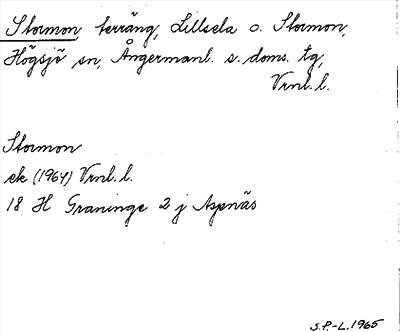 Stormon, terräng, Lillsela o. Stormon,
Högsjö sn, Ångermanl. s. doms. tg,
Vrnl. l.
Stormon
ek (1964) Vrnl. l.
18 H Graninge 2 j Aspnäs
S.P.-L. 1965